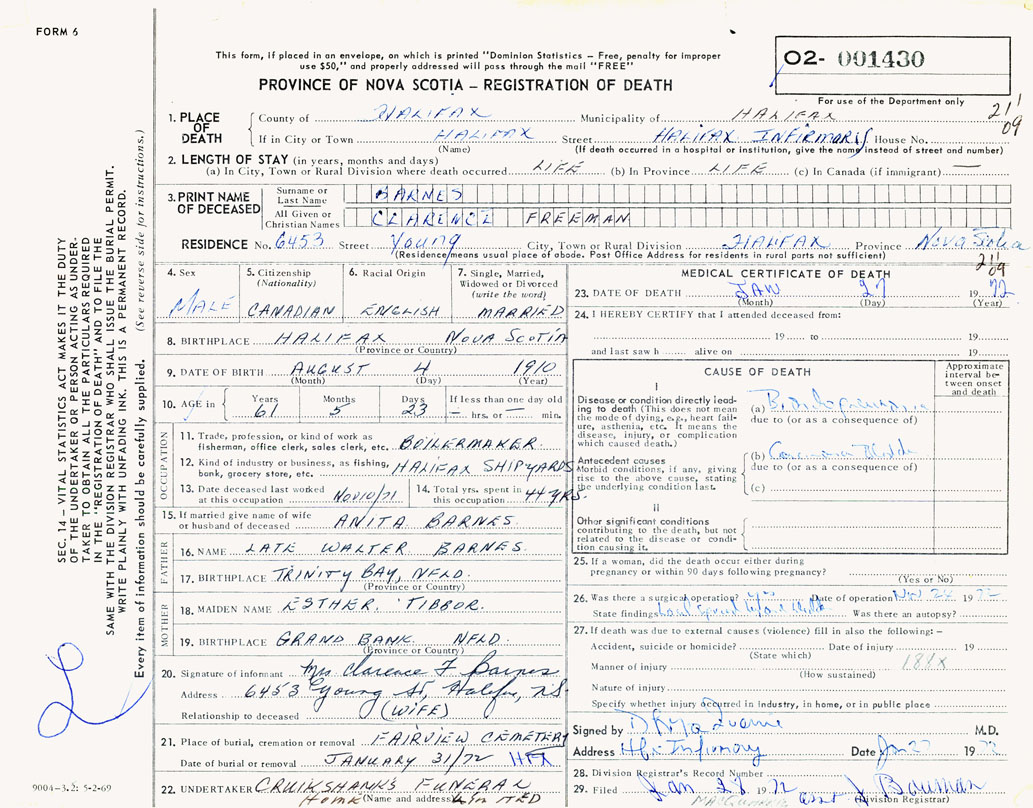 FORM 6
This form, if placed in an envelope, on which is printed "Dominion Statistics – Free, penalty for improper
use $50," and properly addressed will pass through the mail "FREE"
PROVINCE OF NOVA SCOTIA – REGISTRATION OF DEATH
O2- 001430
For use of the Department only
21' 09
1. PLACE OF DEATH
County of HALIFAX Municipality of HALIFAX
If in City or Town HALIFAX Street HALIFAX INFIRMARY House No.
(Name) (If death occurred in a hospital or institution, give the name instead of street and number)
2. LENGTH OF STAY (in years, months and days)
(a) In City, Town or Rural Division where death occurred LIFE (b) In Province LIFE (c) In Canada (if immigrant) —
3. PRINT NAME OF DECEASED
Surname or Last Name BARNES
All Given or Christian Names CLARENCE FREEMAN
RESIDENCE No. 6453 Street Young City, Town or Rural Division HALIFAX Province Nova Scotia
(Residence means usual place of abode. Post Office Address for residents in rural parts not sufficient)
21' 09
4. Sex MALE
5. Citizenship (Nationality) CANADIAN
6. Racial Origin ENGLISH
7. Single, Married, Widowed or Divorced (write the word) MARRIED
8. BIRTHPLACE HALIFAX NOVA SCOTIA
(Province or Country)
9. DATE OF BIRTH AUGUST 4 1910
(Month) (Day) (Year)
10. AGE in Years 61 Months 5 Days 23 If less than one day old — hrs. or — min.
OCCUPATION
11. Trade, profession, or kind of work as fisherman, office clerk, sales clerk, etc. BOILERMAKER
12. Kind of industry or business, as fishing, bank, grocery store, etc. HALIFAX SHIPYARDS
13. Date deceased last worked at this occupation Nov 10/71
14. Total yrs. spent in this occupation 44 YRS.
15. If married give name of wife or husband of deceased ANITA BARNES
FATHER
16. NAME LATE WALTER BARNES
17. BIRTHPLACE TRINITY BAY, NFLD.
(Province or Country)
MOTHER
18. MAIDEN NAME ESTHER TIBBOR.
19. BIRTHPLACE GRAND BANK NFLD
(Province or Country)
20. Signature of informant Mrs Clarence F Barnes
Address 6453 Young St, Halifax, N.S.
Relationship to deceased (WIFE)
21. Place of burial, cremation or removal FAIRVIEW CEMETERY
Date of burial or removal JANUARY 31/72 HFX
22. UNDERTAKER CRUIKSHANKS FUNERAL
HOME (Name and address) LIMITED
MEDICAL CERTIFICATE OF DEATH
23. DATE OF DEATH JAN 27 1972
(Month) (Day) (Year)
24. I HEREBY CERTIFY that I attended deceased from:
19 to 19
and last saw h alive on 19
CAUSE OF DEATH
Approximate interval between onset and death
I
Disease or condition directly leading to death (This does not mean the mode of dying, e.g., heart failure, asthenia, etc. It means the disease, injury, or complication which caused death.)
(a)
due to (or as a consequence of)
Antecedent causes
Morbid conditions, if any, giving rise to the above cause, stating the underlying condition last.
(b) Carcinoma Bladder
due to (or as a consequence of)
(c)
II
Other significant conditions contributing to the death, but not related to the disease or condition causing it.
25. If a woman, did the death occur either during pregnancy or within 90 days following pregnancy?
(Yes or No)
26. Was there a surgical operation? Yes Date of operation Nov 24 19
State findings Was there an autopsy?
27. If death was due to external causes (violence) fill in also the following: –
Accident, suicide or homicide? Date of injury 19
(State which)
Manner of injury 188X
(How sustained)
Nature of injury
Specify whether injury occurred in industry, in home, or in public place
Signed by M.D.
Address Hfx Infirmary Date Jan 27 1972
28. Division Registrar's Record Number
29. Filed Jan 28 1972 Bauman
(Division Registrar)
SEC. 14 – VITAL STATISTICS ACT MAKES IT THE DUTY
OF THE UNDERTAKER OR PERSON ACTING AS UNDER-
TAKER TO OBTAIN ALL THE PARTICULARS REQUIRED
IN THE "REGISTRATION OF DEATH" AND TO FILE THE
SAME WITH THE DIVISION REGISTRAR WHO SHALL ISSUE THE BURIAL PERMIT.
WRITE PLAINLY WITH UNFADING INK. THIS IS A PERMANENT RECORD.
Every item of information should be carefully supplied. (See reverse side for instructions.)
9004-3.2: 5-2-69